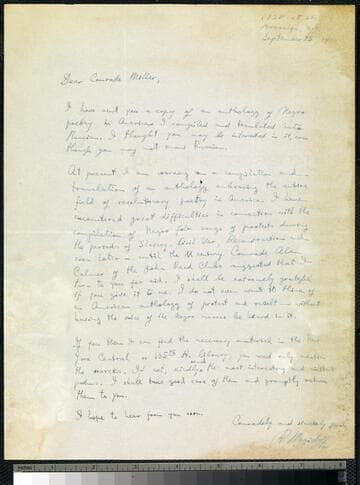 September 15
Dear Comrade
I have sent you a copy of an anthology of Negro
poetry in America I compiled and translated into
Russian. I thought you may be interested in it, even
though you may not read Russian.
At present I am working on a compilation and
translation of an anthology embracing the entire
field of revolutionary poetry in America. I have
encountered great difficulties in connection with the
compilation of Negro folk songs of protest during
the periods of Slavery, Civil War, Reconstruction and
even later - until the century. Comrade Alan
Calmer of the John Reed Clubs suggested that I
turn to you for aid. I shall be extremely grateful
if you give it to me. I do not even want to think of
an American anthology of protest and revolt - without
having the voice of the Negro masses be heard in it.
If you think I can find the necessary material in the New
York Central or 135th St. Library, you need only mention
the sources. If not, kindly send the most interesting and
poems. I shall take good care of them and promptly return
them to you.
I hope to hear from you soon.
Comradely and sincerely yours,